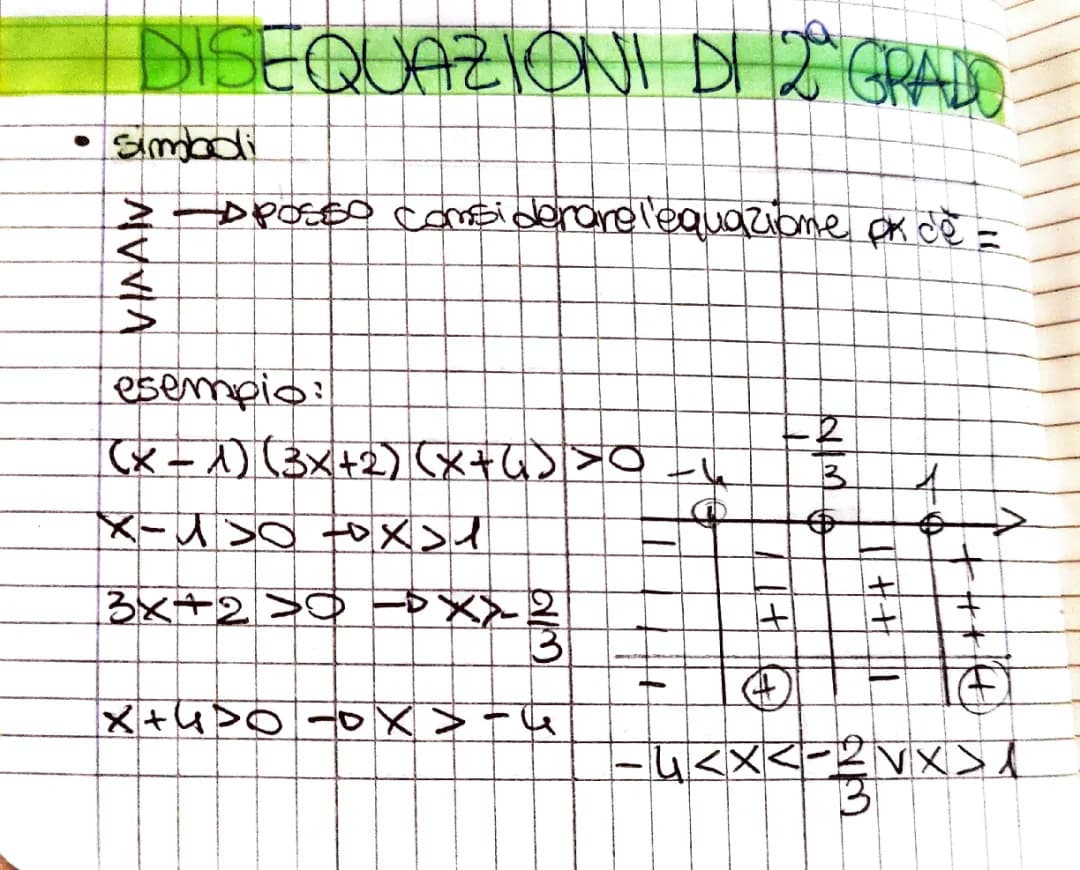 DISEQUAZIONI DI 2ª GRADO
• simboli
≥ → posso considerare l'equazione pk c'è =
<
≤
>
esempio:
(x-1)(3x+2)(x+4)>0
x-1>0 → x>1
3x+2>0 → x>-2/3
x+4>0 → x>-4
-4 -2/3 1
- - - +
- - + +
- + + +
- + - +
-4<x<-2/3 V x>1